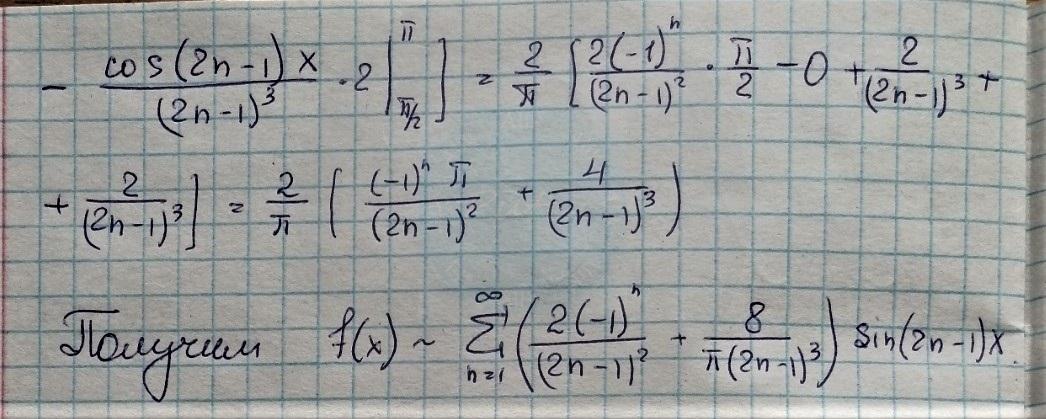 - \frac{\cos(2n-1)x}{(2n-1)^3} \cdot 2 \Big|_{π/2}^{π} ] = \frac{2}{π} [ \frac{2(-1)^n}{(2n-1)^2} \cdot \frac{π}{2} - 0 + \frac{2}{(2n-1)^3} +
+ \frac{2}{(2n-1)^3} ] = \frac{2}{π} ( \frac{(-1)^n π}{(2n-1)^2} + \frac{4}{(2n-1)^3} )
Получим f(x) ~ \sum_{n=1}^{∞} ( \frac{2(-1)^n}{(2n-1)^2} + \frac{8}{π(2n-1)^3} ) sin(2n-1)x.